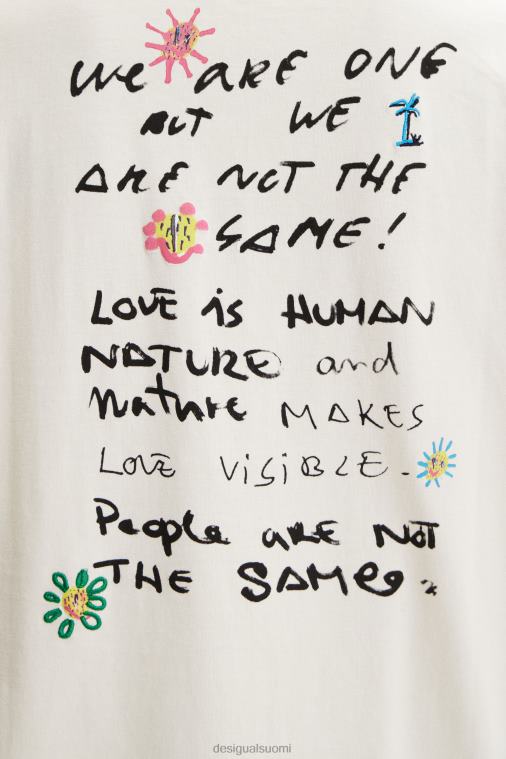 We ARE ONE
BUT WE
ARE NOT THE
SAME!
LOVE is HUMAN
NATURE and
Nature MAKES
LOVE VISIBLE.
People ARE NOT
THE SAME.
desigualsuomi